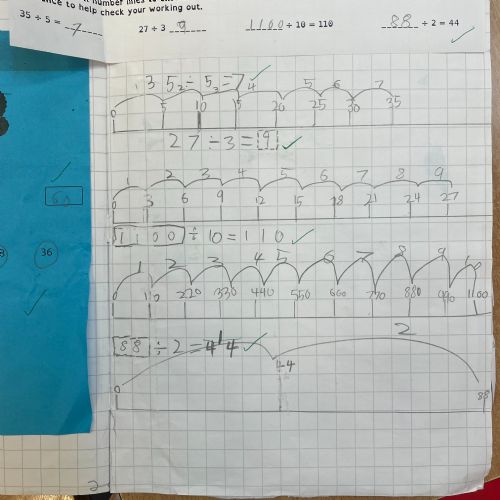 number lines to
ence to help check your working out.
35 ÷ 5 = 7
27 ÷ 3 9
1100 ÷ 10 = 110
88 ÷ 2 = 44
35 ÷ 5 = 7
1 2 3 4 5 6 7
0 5 10 15 20 25 30 35
27 ÷ 3 = 9
1 2 3 4 5 6 7 8 9
0 3 6 9 12 15 18 21 24 27
60
1100 ÷ 10 = 110
36
1 2 3 4 5 6 7 8 9 10
0 110 220 330 440 550 660 770 880 990 1100
88 ÷ 2 = 44
1 2
0 44 88
2